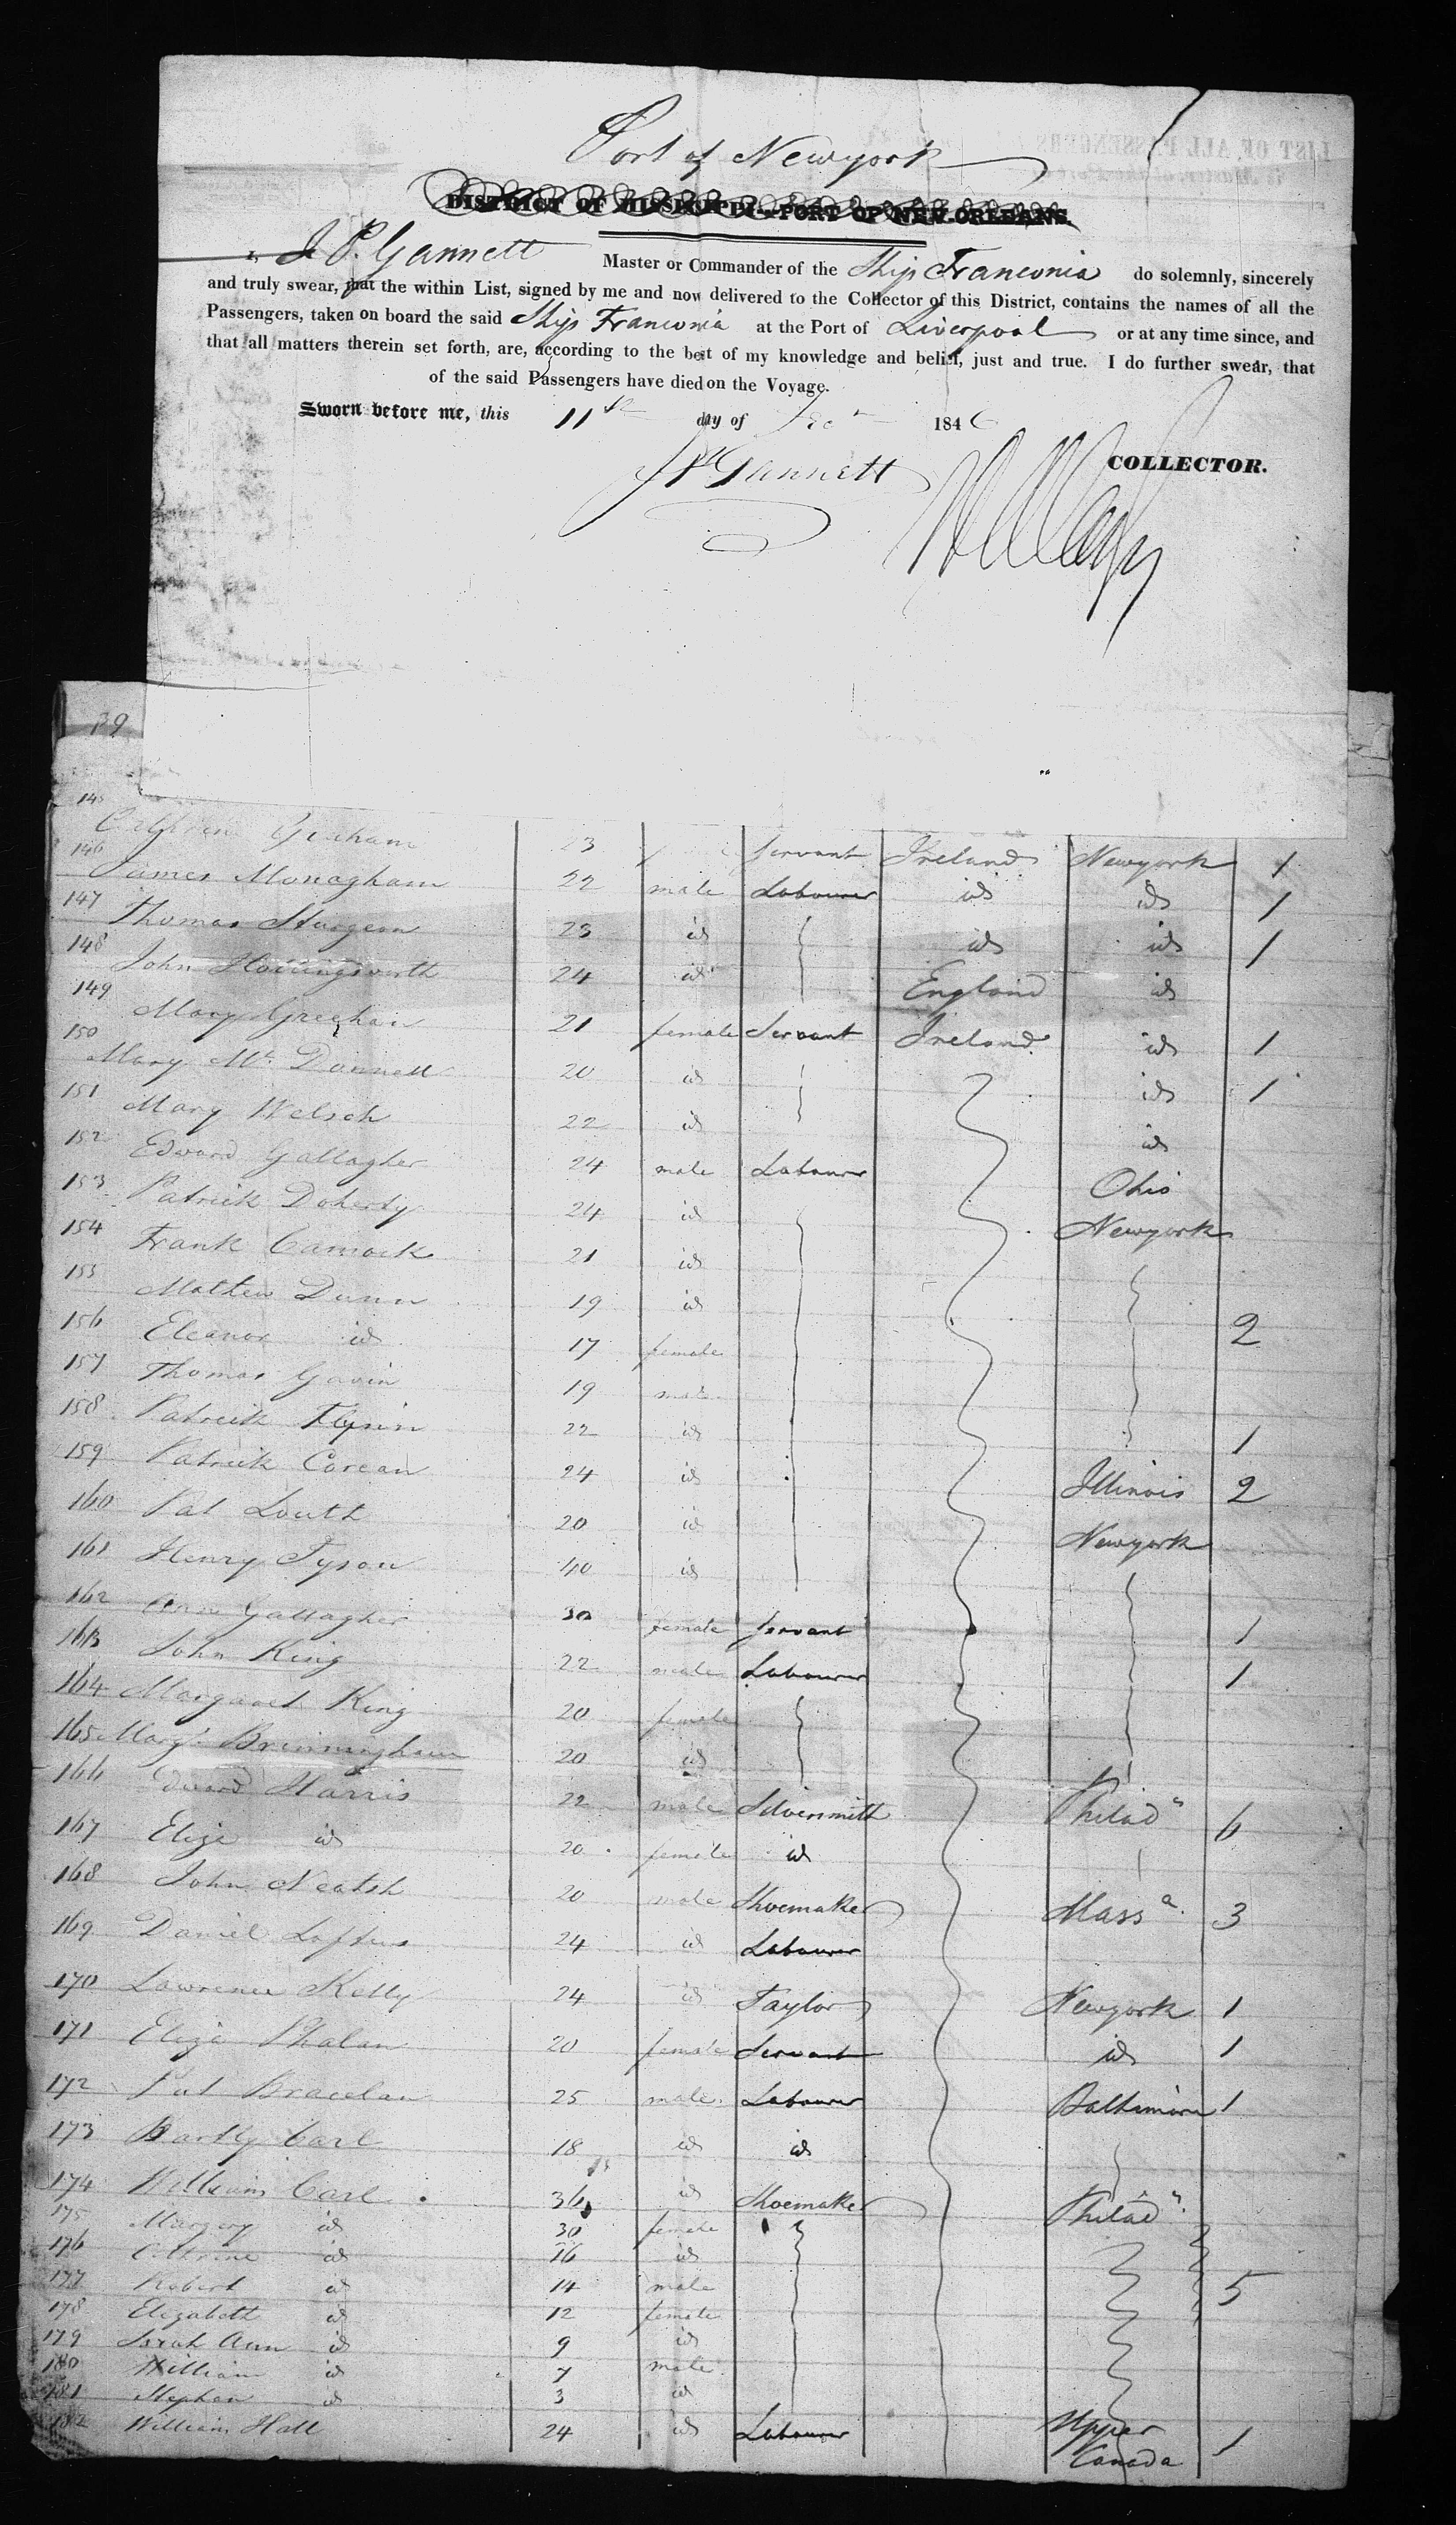 Port of Newyork
DISTRICT OF MISSISSIPPI--PORT OF NEW-ORLEANS.
I, J P. Gannett Master or Commander of the Ship Franconia do solemnly, sincerely
and truly swear, that the within List, signed by me and now delivered to the Collector of this District, contains the names of all the
Passengers, taken on board the said Ship Franconia at the Port of Liverpool or at any time since, and
that all matters therein set forth, are, according to the best of my knowledge and belief, just and true. I do further swear, that
of the said Passengers have died on the Voyage.
Sworn before me, this 11th day of Dec 1846
JP Gannett
COLLECTOR.
145 Graham 23 Servant Ireland Newyork 1
146 James Monagham 22 male Labourer id id 1
147 Thomas Sturgeon 23 id id id 1
148 John Hollingsworth 24 id England id
149 Mary Greehan 21 female Servant Ireland id 1
150 Mary Mc Donnell 20 id id 1
151 Mary Welsch 22 id id
152 Edward Gallagher 24 male Labourer Ohio
153 Patrick Doherty 24 id Newyork
154 Frank Camock 21 id
155 Mathew Dunn 19 id
156 Eleanor id 17 female 2
157 Thomas Gavin 19 male
158 Patrick Flynn 22 id 1
159 Patrick Corcan 24 id Illinois 2
160 Pat Louth 20 id Newyork
161 Henry Tyson 40 id
162 Ann Gallagher 30 female Servant 1
163 John King 22 male Labourer 1
164 Margaret King 20 female
165 Margt Brinningham 20 id
166 Edward Harris 22 male Silversmith Philada 6
167 Eliza id 20 female id
168 John Neatsh 20 male Shoemaker Massa. 3
169 Daniel Loftus 24 id Labourer
170 Lawrence Kelly 24 id Taylor Newyork 1
171 Eliza Phalan 20 female Servant id 1
172 Pat Bracelan 25 male Labourer Baltimore 1
173 Bartly Carl 18 id id
174 William Carl 36 id Shoemaker Philada.
175 Margery id 30 female
176 Catrine id 16 id
177 Robert id 14 male 5
178 Elizabeth id 12 female
179 Sarah Ann id 9 id
180 William id 7 male
181 Stephen id 3 id
182 William Hall 24 id Labourer Upper Canada 1